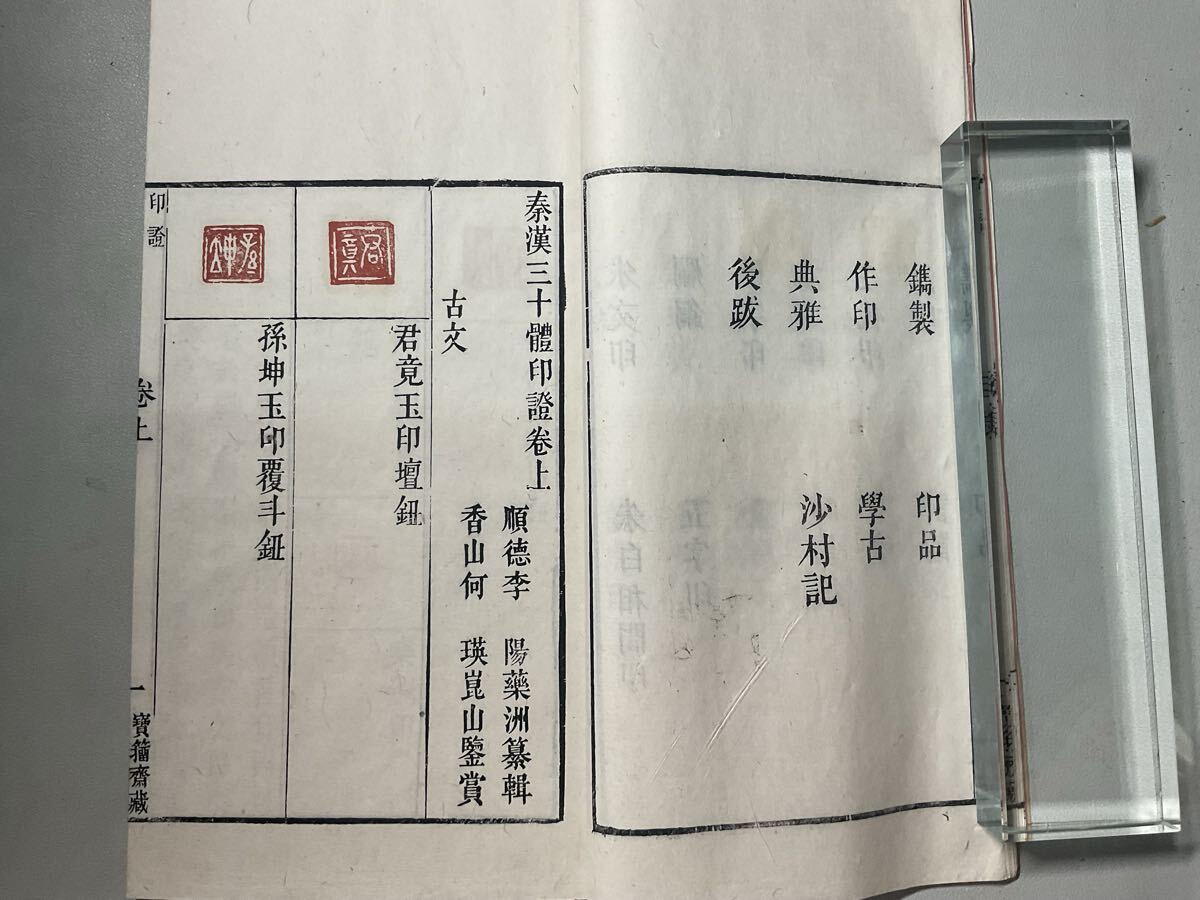 鐫製 印品
作印 學古
典雅 沙村記
後跋
秦漢三十體印證卷上
順德李 陽藥洲纂輯
香山何 瑛崑山鑒賞
古文
君竟玉印壇鈕
孫坤玉印覆斗鈕
印證 卷上 一 寶籀齋藏